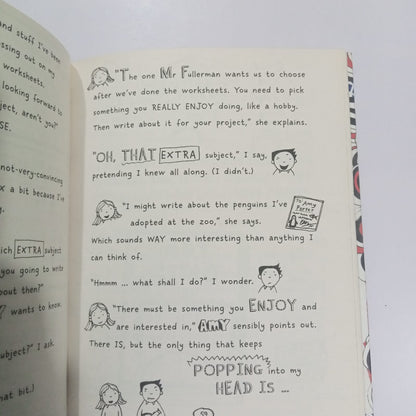 and stuff I've been
ssing out on my
worksheets.
looking forward to
ject, aren't you?"
SE.
not-very-convincing
x a bit because I've
ich EXTRA subject
you going to write
about then?"
wants to know.
subject?" I ask
hat bit.)
"The one Mr Fullerman wants us to choose
after we've done the worksheets. You need to pick
something you REALLY ENJOY doing, like a hobby.
Then write about it for your project," she explains.
"OH, THAT EXTRA subject," I say,
pretending I knew all along. (I didn't.)
"I might write about the penguins I've
adopted at the zoo," she says.
To Amy
Porter
Which sounds WAY more interesting than anything I
can think of.
"Hmmm ... what shall I do?" I wonder.
"There must be something you ENJOY and
are interested in," AMY sensibly points out.
There IS, but the only thing that keeps
POPPING into my
HEAD IS ...